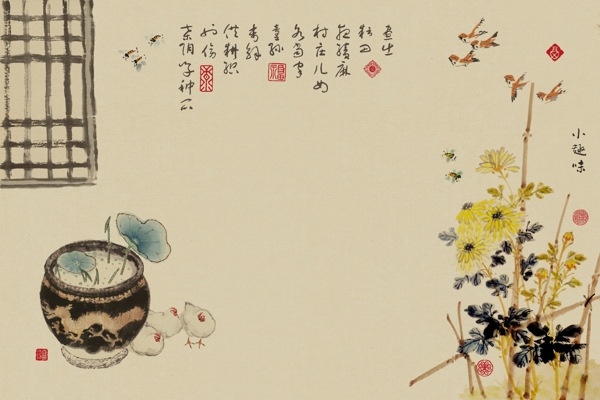 昼出
耘田
夜績麻
村庄儿女
各當家
童孙
未解
供耕织
也傍
桑阴学种瓜
小趣味